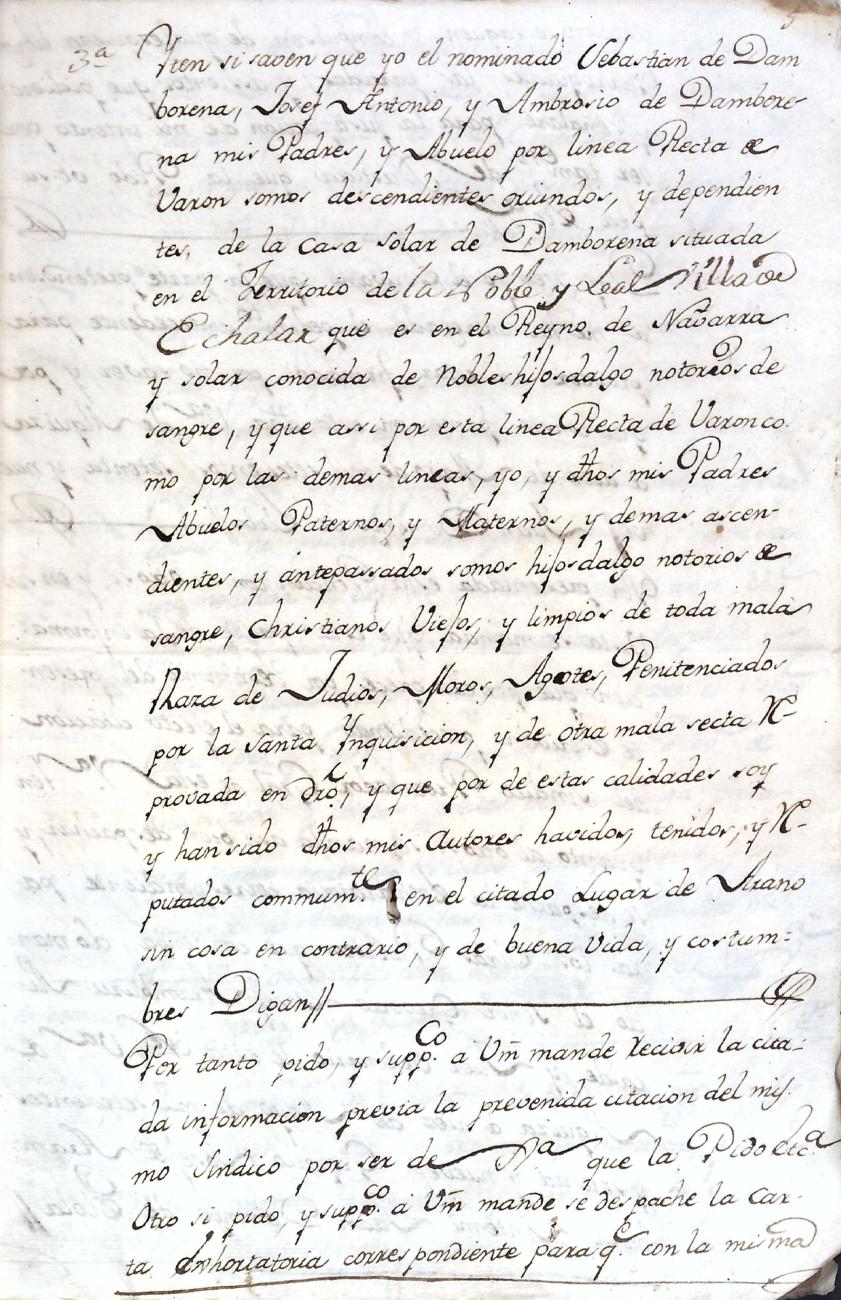 5
3ª Yten si saven que yo el nominado Sebastian de Dam
borena, Josef Antonio, y Ambrosio de Dambore-
na mis Padres, y Abuelo por linea Recta de
Varon somos descendientes oriundos, y dependien
tes, de la Casa solar de Damborena situada
en el Territorio de la Noble y Leal Villa de
Echalar que es en el Reyno de Navarra
y solar conocida de Nobles hijosdalgo notorios de
sangre, y que assi por esta linea Recta de Varon co
mo por las demas lineas, yo, y dhos mis Padres
Abuelos Paternos, y Maternos, y demas ascen-
dientes, y antepassados somos hijosdalgo notorios de
sangre, Christianos Viejos, y limpios de toda mala
Raza de Judios, Moros, Agotes, Penitenciados
por la Santa Ynquisicion, y de otra mala secta Re-
provada en dró, y que por de estas calidades soy
y han sido dhos mis Autores havidos, tenidos, y Re-
putados commumte en el citado Lugar de Arano
sin cosa en contrario, y de buena Vida, y costum-
bres Digan//
Por tanto pido, y suppco a Vm mande recivir la cita-
da informacion previa la prevenida citacion del mis
mo Sindico por ser de que la Pido etcª
Otro si pido, y suppco a Vm mande se despache la Car-
ta Exhortatoria correspondiente para qe con la misma